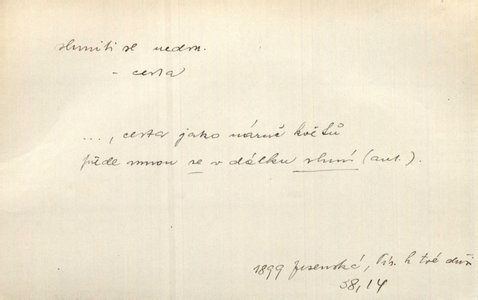 sluniti se nedok.
- cesta
..., cesta jako náruč květů
přede mnou se v dálku sluní (aut.).
1899 Jesenská, Pís. k tvé duši
38,14